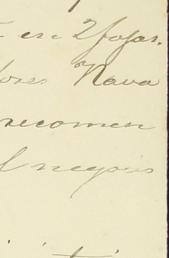 en 2 fojas.
ores Nava
recomen
l negocio